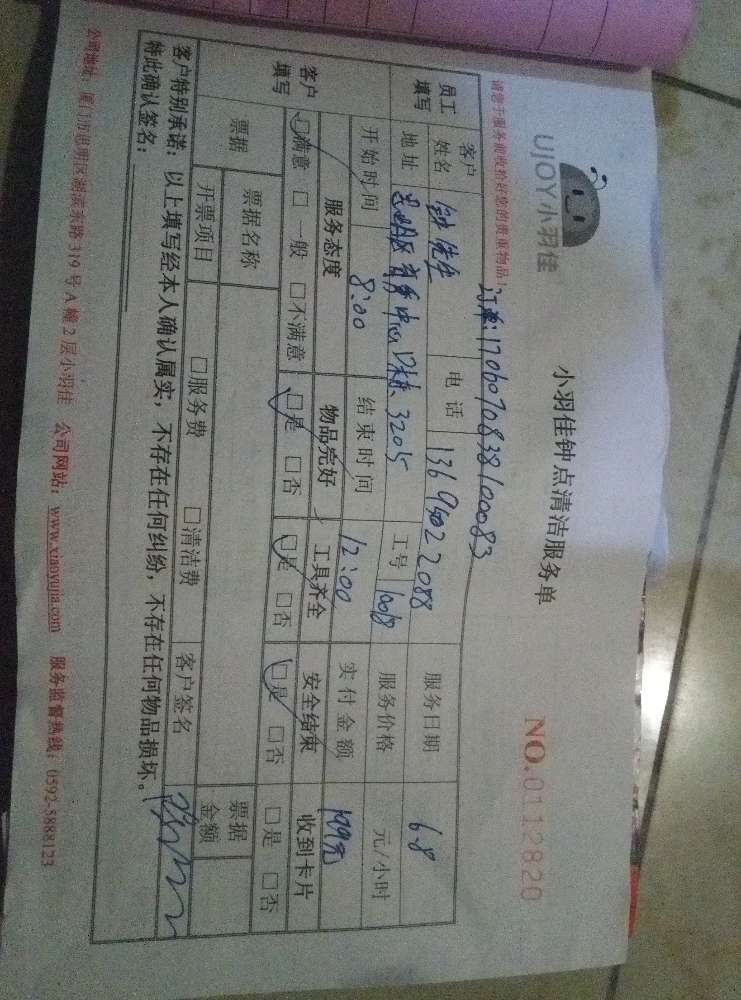 UJOY小羽佳
小羽佳钟点清洁服务单
NO.0112820
请您于服务前收拾好您的贵重物品!
订单:170607083810083
员工填写 客户姓名 钟先生 电话 13695022088 服务日期 6.8
地址 商务中心 3205 工号 服务价格 元/小时
开始时间 8:00 结束时间 12:00 实付金额 199元
客户填写 服务态度 物品完好 工具齐全 安全结束 收到卡片
□满意 □一般 □不满意 □是 □否 □是 □否 □是 □否 □是 □否
票据 票据名称 票据金额
开票项目 □服务费 □清洁费 客户签名
客户特别承诺:以上填写经本人确认属实,不存在任何纠纷,不存在任何物品损坏。
特此确认签名:
公司地址:厦门市思明区湖滨东路319号A幢2层小羽佳 公司网站:www.xiaoyujia.com 服务监督热线:0592-5888123